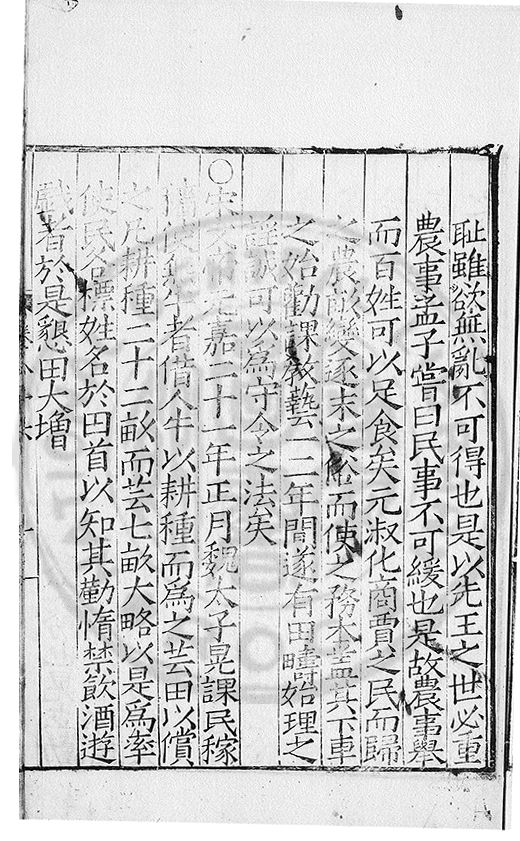 耻雖欲無亂不可得也是以先王之世必重
農事孟子嘗曰民事不可緩也是故農事舉
而百姓可以足食矣元淑化商賈之民而歸
之農敵變逐末之俗而使之務本蓋其下車
之始勸課敎藝一二年間遂有田疇始理之
謡誠可以爲守令之法矣
○宋文帝元嘉二十一年正月魏太子晃課民稼
穡使無牛者借人牛以耕種而爲之芸田以償
之凡耕種二十二畝而芸七畝大略以是爲率
使民各標姓名於田首以知其勤惰禁飲酒遊
戲者於是懇田大增